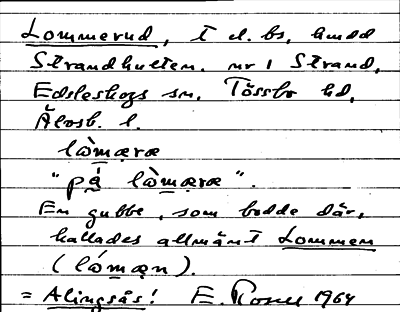 Lommerud, t d. bs, kmdd
Strandhulten. nr 1 Strand,
Edsleskogs sn. Tössbo hd,
Älvsb. l.
lò̀mæræ
"på lò̀mæræ".
En gubbe, som bodde där,
kallades allmänt Lommen
(lómæn).
= Alingsås! E. Rosell 1964